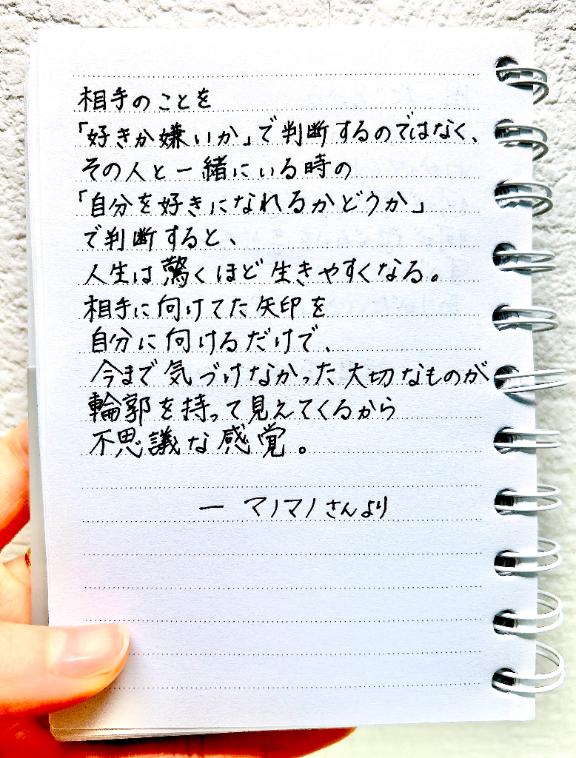 相手のことを
「好きか嫌いか」で判断するのではなく、
その人と一緒にいる時の
「自分を好きになれるかどうか」
で判断すると、
人生は驚くほど生きやすくなる。
相手に向けてた矢印を
自分に向けるだけで、
今まで気づけなかった大切なものが
輪郭を持って見えてくるから
不思議な感覚。
ー マノマノさんより